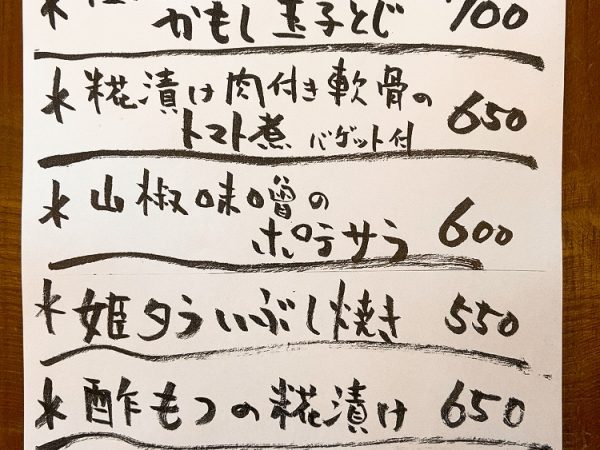 * かもし玉子とじ 700
* 糀漬け肉付き軟骨の
トマト煮 バゲット付 650
* 山椒味噌の
ポテサラ 600
* 姫タラいぶし焼き 550
* 酢もつの糀漬け 650